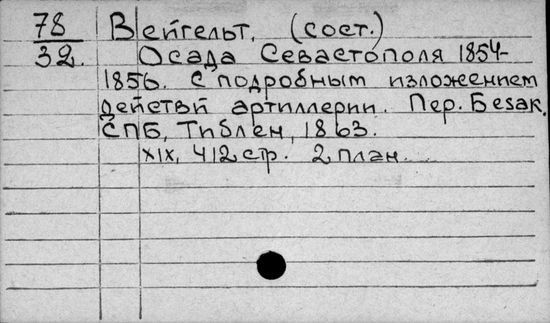 78 Вейгельт, (сост.)
32. Осада Севастополя 1854-
1856. С подробным изложением
действй артиллерии. Пер. Безак.
СПБ, Тиблен, 1863.
XIX, 412 стр. 2 план.